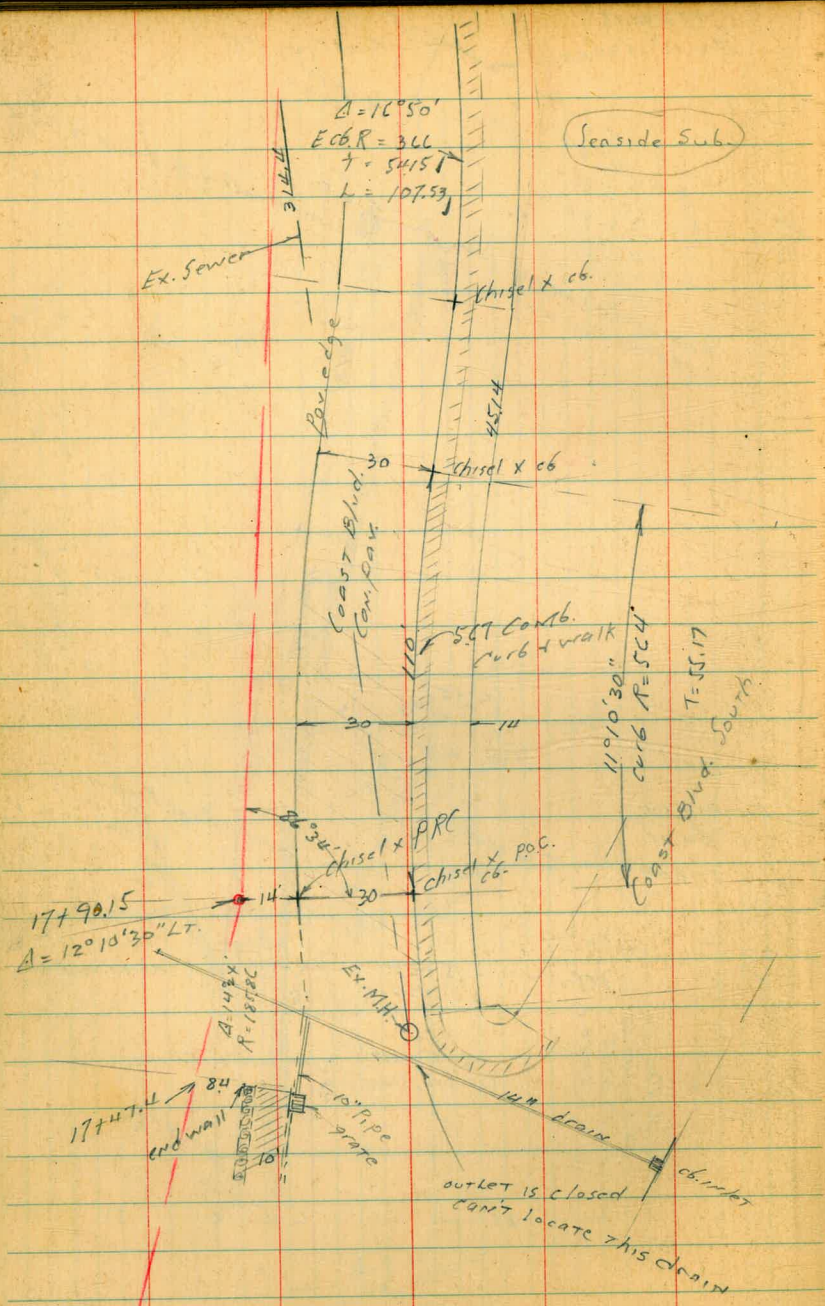 Δ = 16°50'
E cb. R = 366
t = 54.15
L = 107.53
Seaside Sub.
314.4
Ex. Sewer
Chisel x cb.
Pav. edge
45.14
30
chisel x cb
Coast Blvd.
Con. pav.
110'
5.67 Comb.
curb & walk
11°10'30"
curb R=564'
T=55.17
Coast Blvd. South
30
14
86°34'
chisel x PRC
chisel x P.O.C.
cb.
14'
30
17+90.15
Δ = 12°10'30" LT.
R=185.86
Ex. M.H.
17+47.4
8.4
end wall
10'
10" Pipe
grate
14" drain
cb. inlet
outlet is closed
can't locate this drain